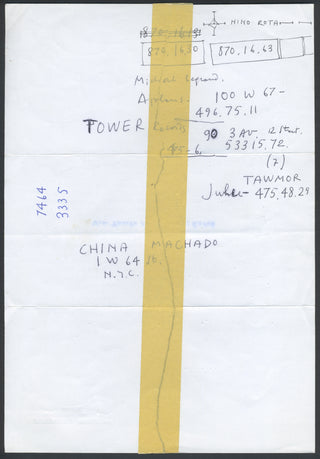 870.16.15
NINO ROTA
870.16.50
870.16.63
Michel Legrand.
100 W 67 -
496.75.11
TOWER Records
90 3 AV. 12 Str.
533 15.72.
475-6.
(7)
TAWMOR
475.48.29
7464
3335
CHINA MACHADO
1 W 64 St.
N.Y.C.